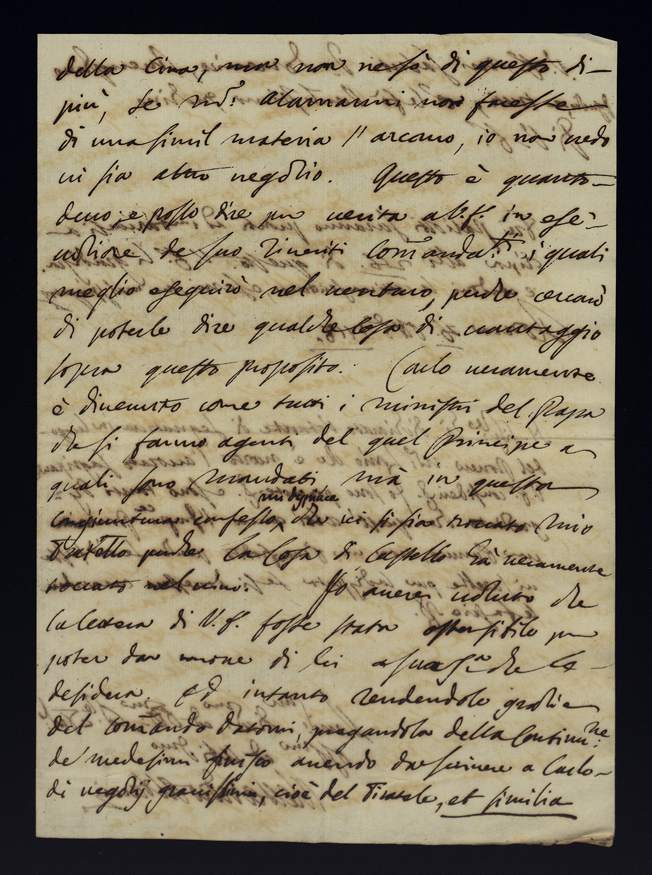 della Cina, ma non ne sà di questo di-
più, se m.r Alamanni non facesse
di una simil materia l'arcano, io non vedo
vi sia altro negozio. Questo è quanto
devo, e posso dire per verita a V.S. in ese-
cuzione de suo riveriti Comanda.ti i quali
meglio eseguirò nel venturo, perche cercarò
di poterle dire qualche Cosa di vantaggio
sopra questo proposito. Carlo veramente
è divenuto come tutti i ministri del Papa
che si fanno agenti del quel Principe a
quali sono mandati mà in questa
congiuntura confesso, mi dispiace che ci si sia trovato mio
Fratello perche la Cosa di Castello hà veramente
toccato nel vivo. Io averei voluto che
la lettera di V.S. fosse stata ostensibile per
poter dar di lei a che la
desidera. Ed intanto rendendole grazie
del comãndo datomi, pregandola della Continu.ne
de' medesimi finisco avendo da scrivere a Carlo
di negozij gravissimi, cioè del Tirarele, et similia